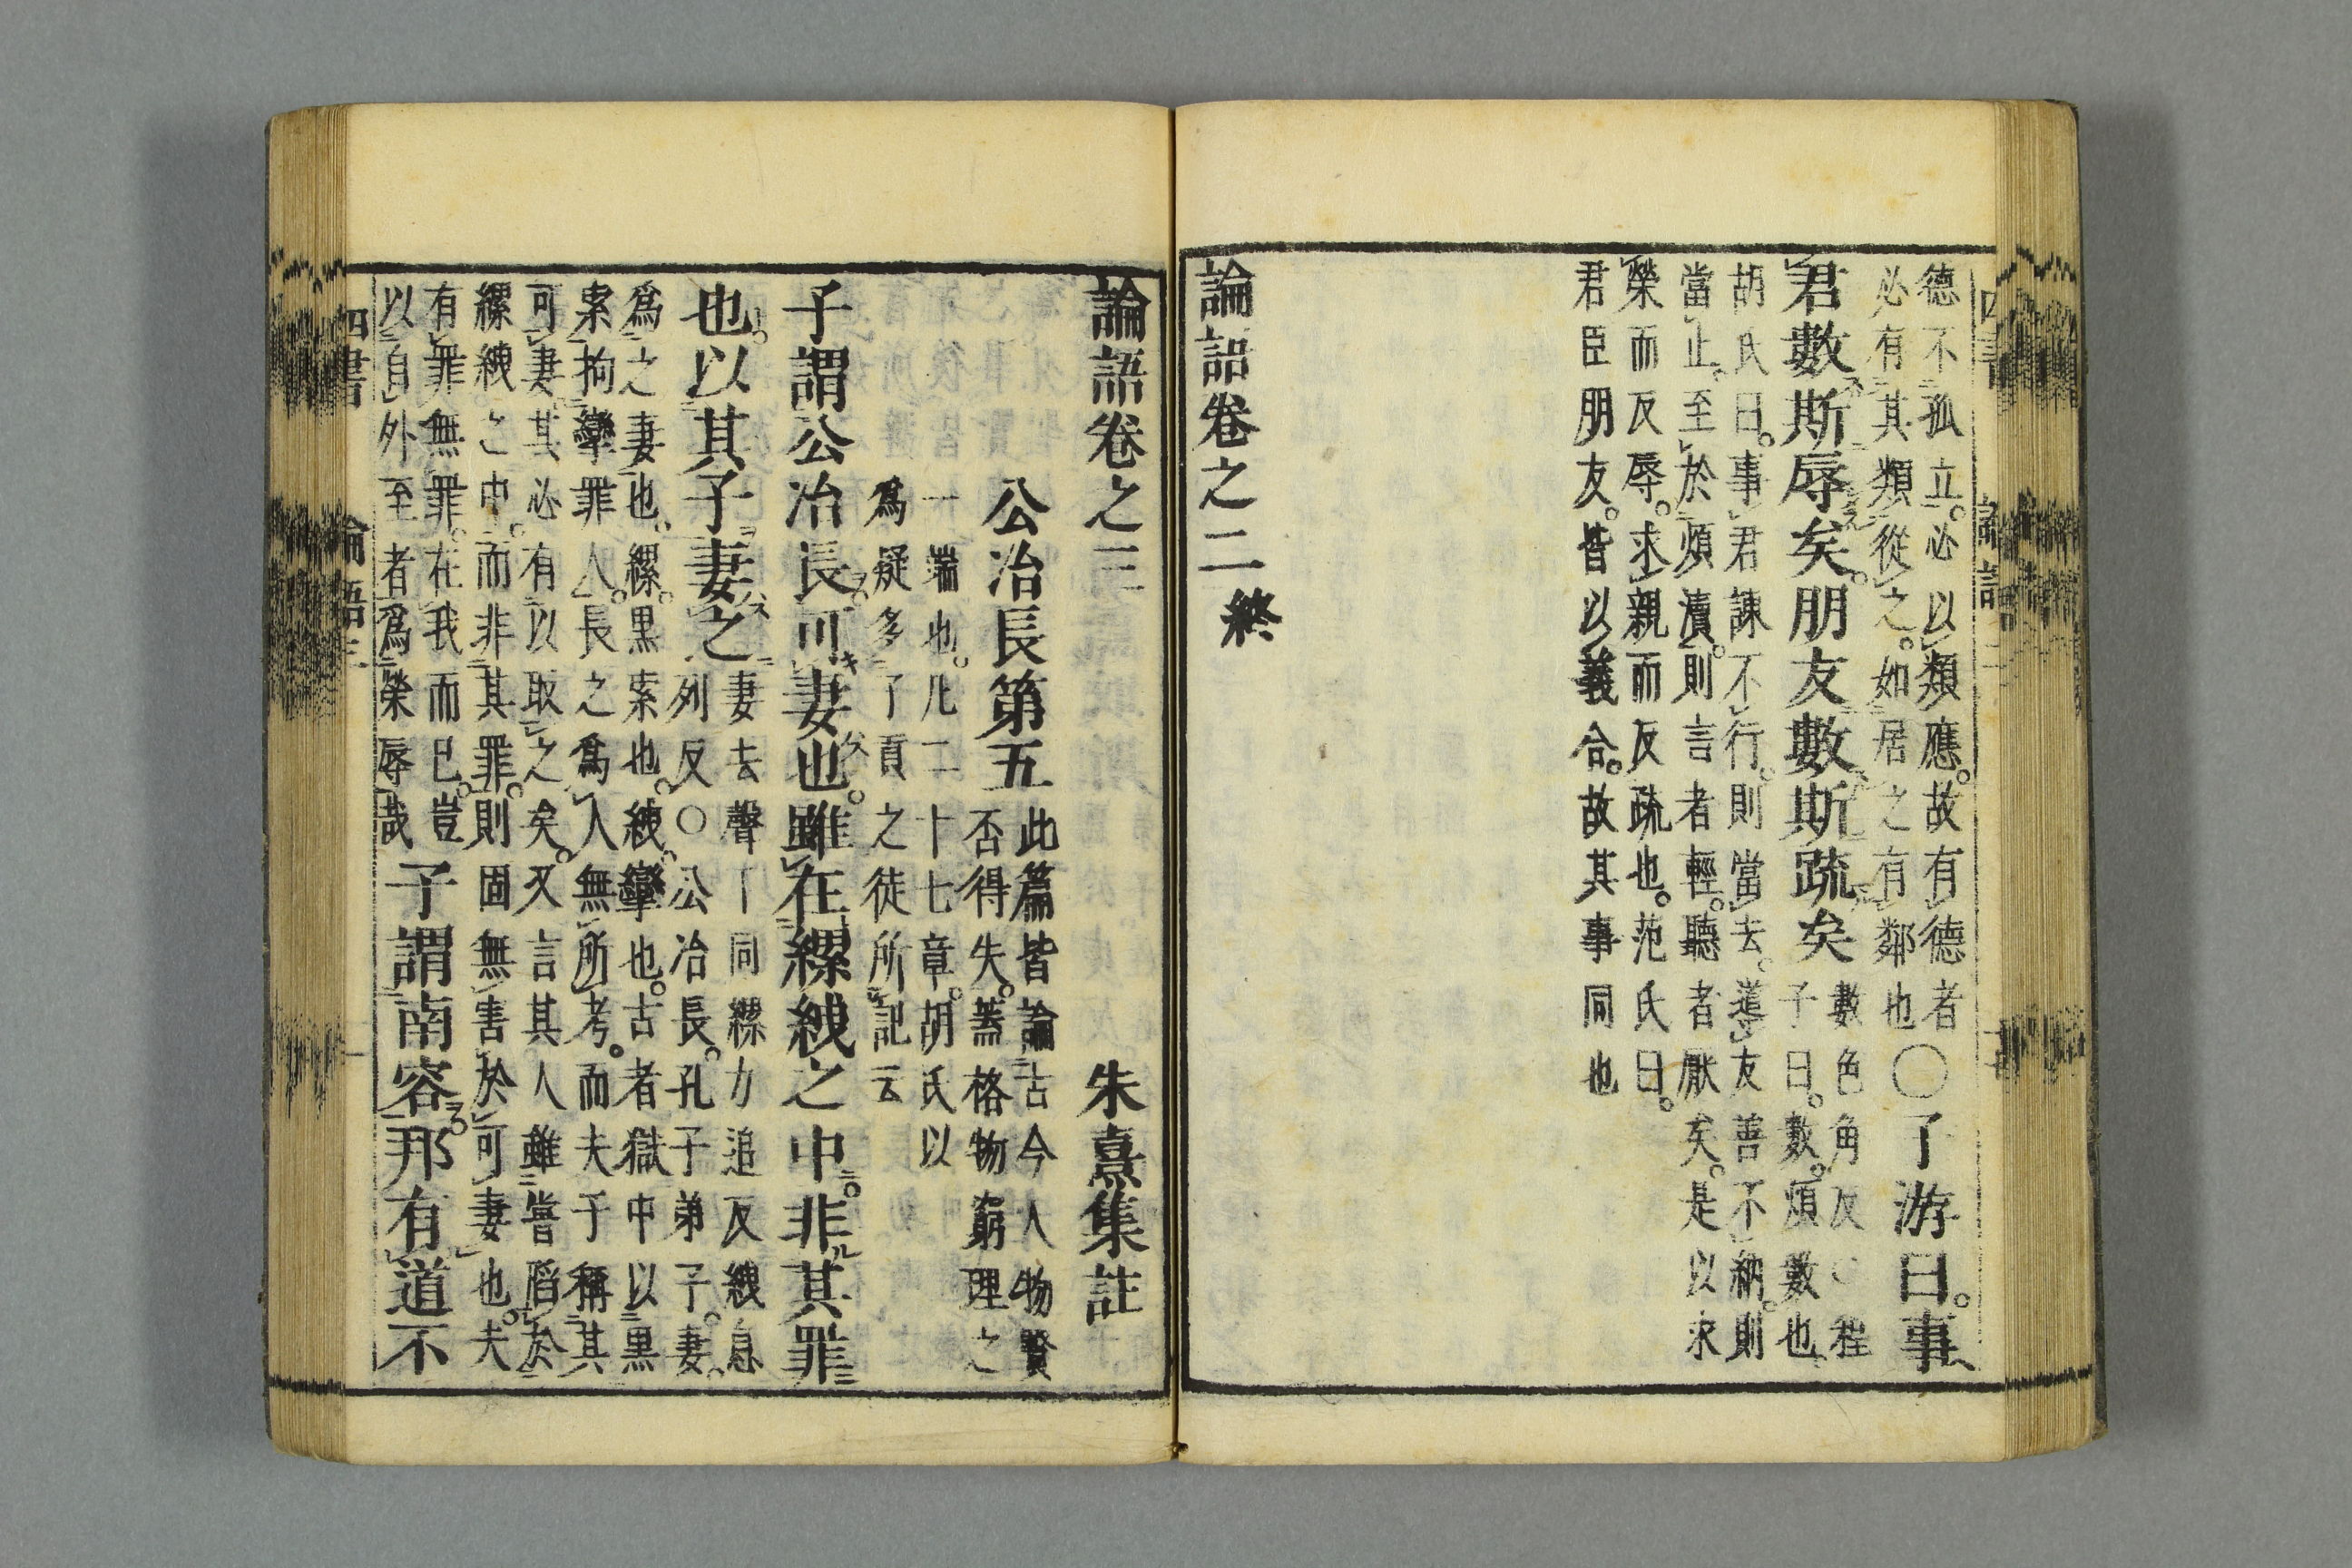 德不孤立。必以類應。故有德者
必有其類從之。如居之有鄰也〇子游曰。事
君數斯辱矣。朋友數斯疏矣
數色角反〇程
子曰。數。煩數也
胡氏曰。事君諫不行。則當去。導友善不納。則
當止。至於煩瀆。則言者輕。聽者厭矣。是以求
榮而反辱。求親而反疏也。范氏曰。
君臣朋友。皆以義合。故其事同也
論語卷之二終
論語卷之三 朱熹集註
公冶長第五
此篇皆論古今人物賢
否得失。蓋格物窮理之
一端也。凡二十七章。胡氏以
爲疑多子貢之徒所記云
子謂公冶長可妻也。雖在縲絏之中。非其罪
也。以其子妻之
妻去聲下同縲力追反絏息
列反〇公冶長。孔子弟子。妻。
爲之妻也。縲。黑索也。絏。攣也。古者獄中以黑
索拘攣罪人。長之爲人無所考。而夫子稱其
可妻。其必有以取之矣。又言其人雖嘗陷於
縲絏之中。而非其罪。則固無害於可妻也。夫
有罪無罪。在我而已。豈
以自外至者爲榮辱哉
子謂南容。邦有道不
四書 論語三 一